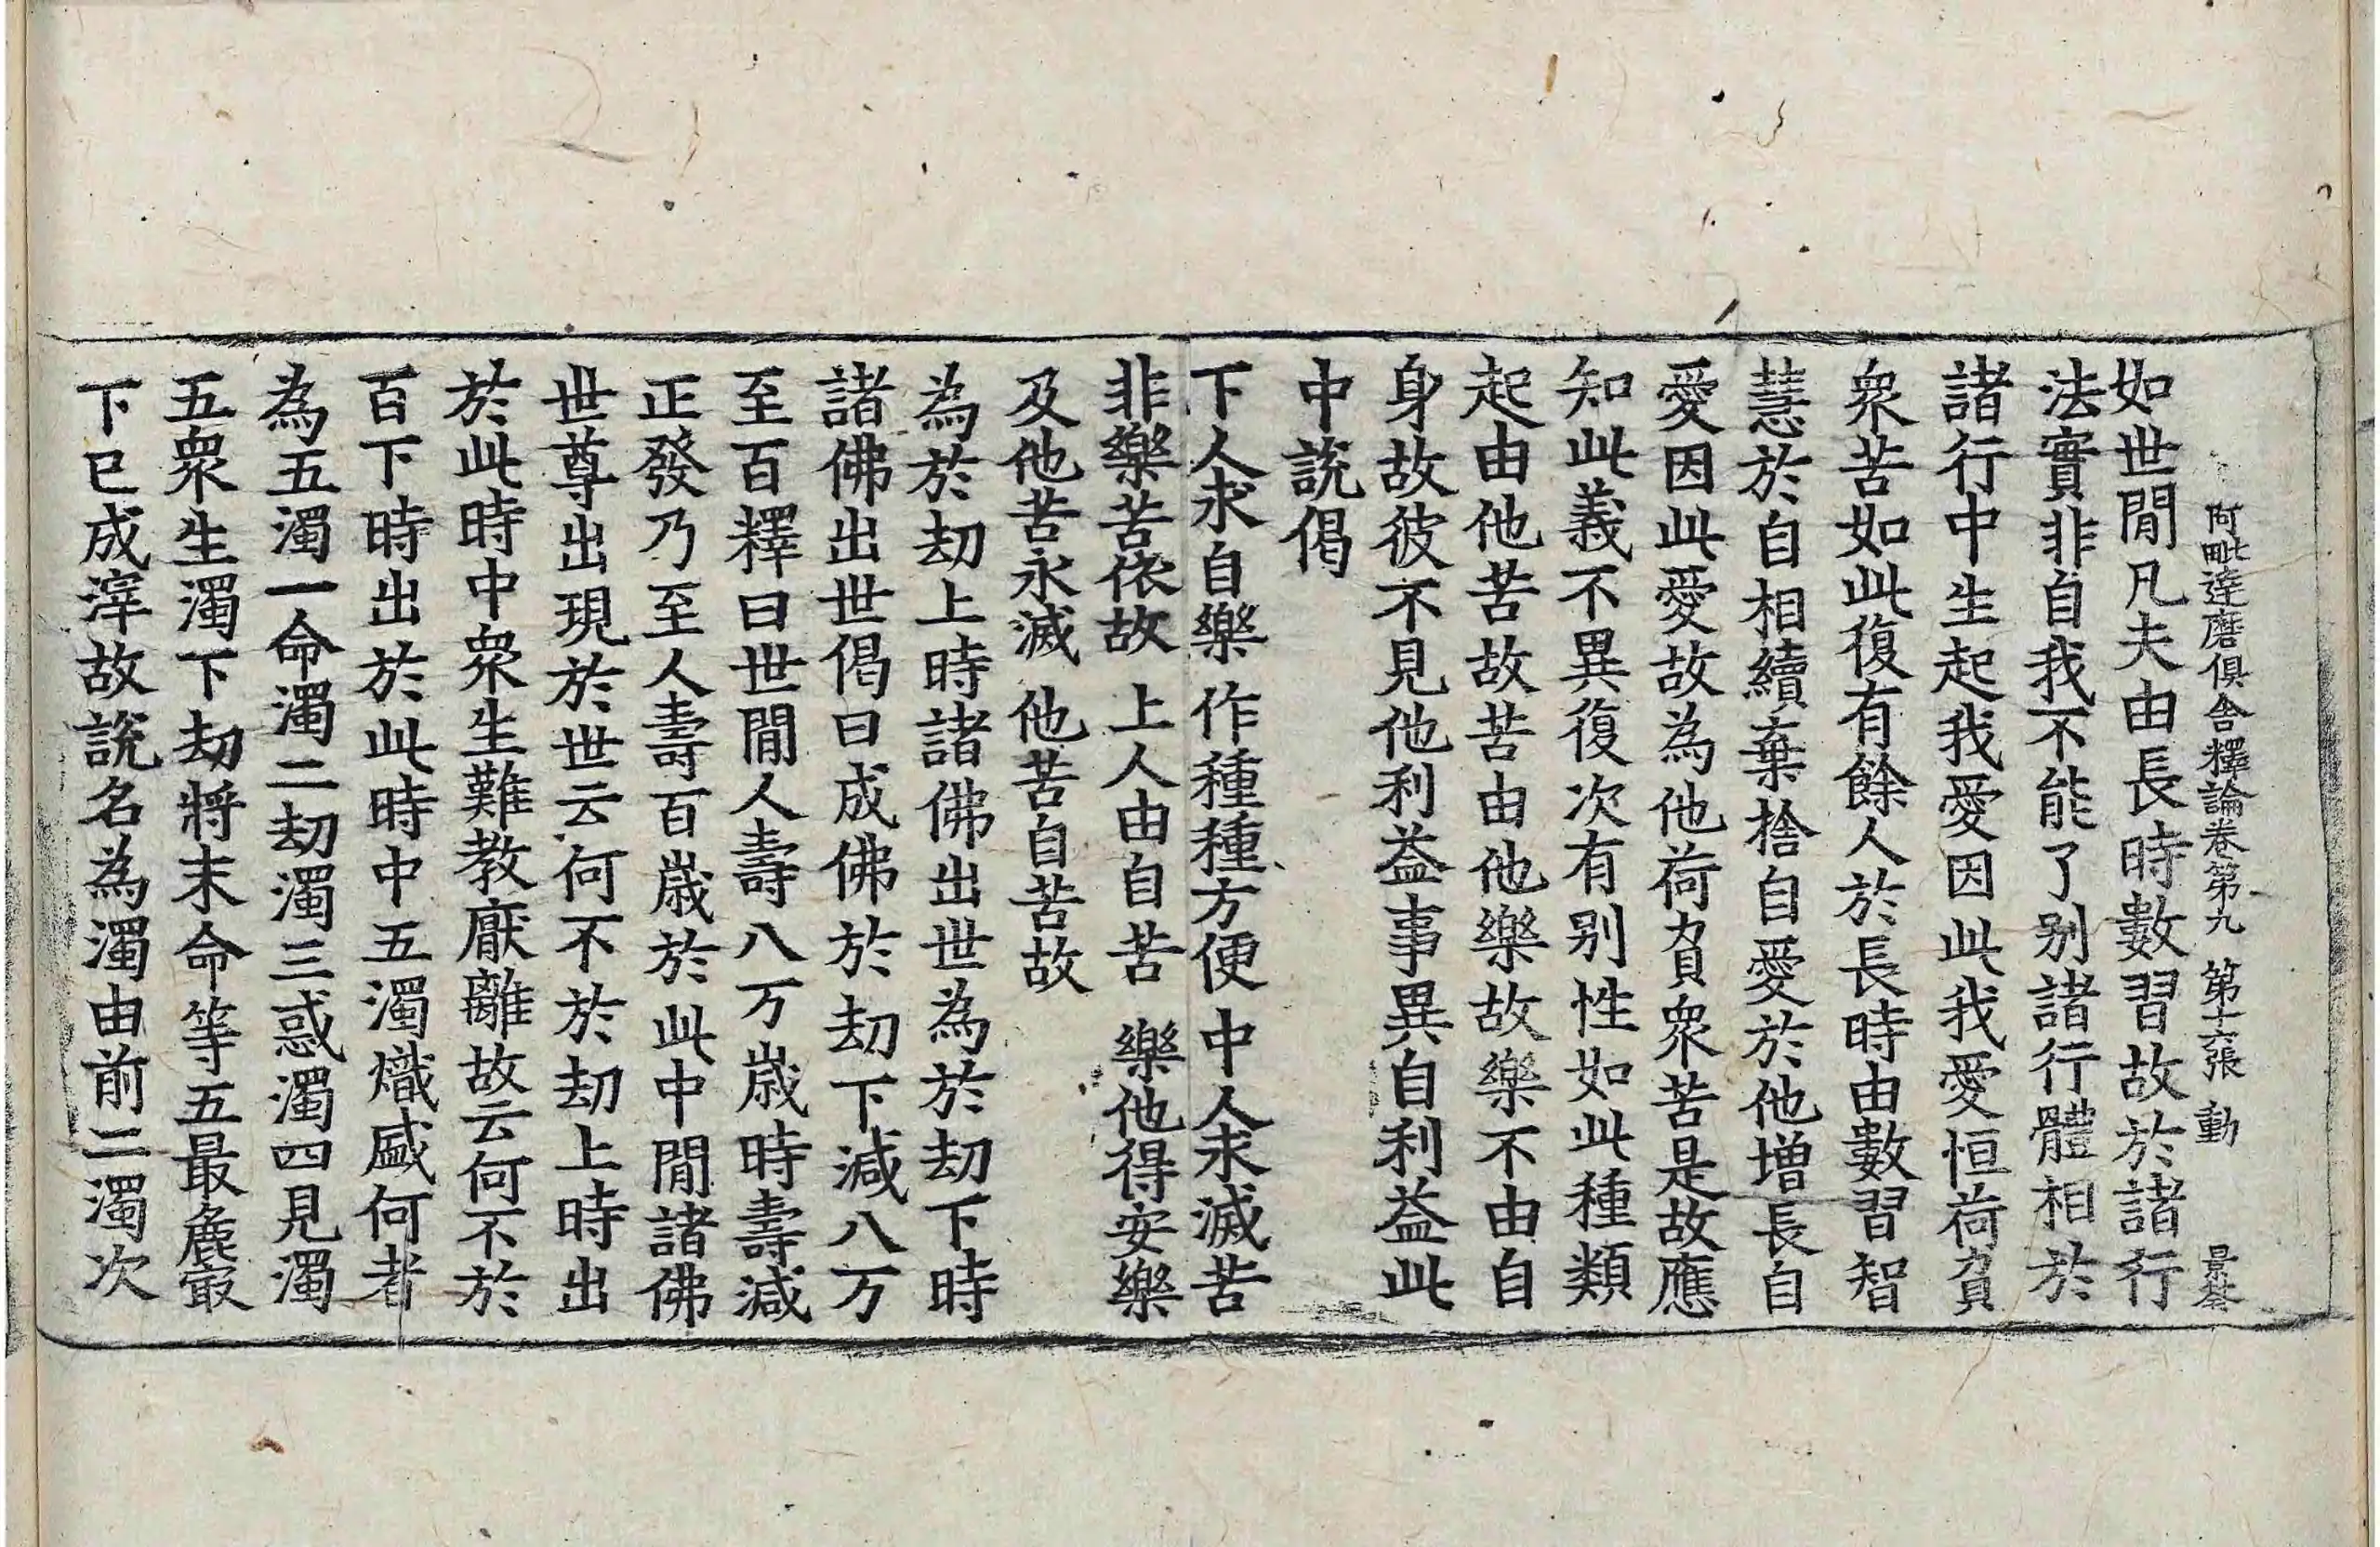 阿毗達磨俱舍釋論卷第九 第十六張 動
如世閒凡夫由長時數習故於諸行
法實非自我不能了別諸行體相於
諸行中生起我愛因此我愛恒荷負
衆苦如此復有餘人於長時由數習智
慧於自相續棄捨自愛於他增長自
愛因此愛故為他荷負衆苦是故應
知此義不異復次有別性如此種類
起由他苦故苦由他樂故樂不由自
身故彼不見他利益事異自利益此
中說偈
下人求自樂 作種種方便 中人求滅苦
非樂苦依故 上人由自苦 樂他得安樂
及他苦永滅 他苦自苦故
為於劫上時諸佛出世為於劫下時
諸佛出世偈曰成佛於劫下減八万
至百釋曰世閒人壽八万歲時壽減
正發乃至人壽百歲於此中閒諸佛
世尊出現於世云何不於劫上時出
於此時中衆生難教厭離故云何不於
百下時出於此時中五濁熾盛何者
為五濁一命濁二劫濁三惑濁四見濁
五衆生濁下劫將末命等五最麁最
下已成滓故說名為濁由前二濁次